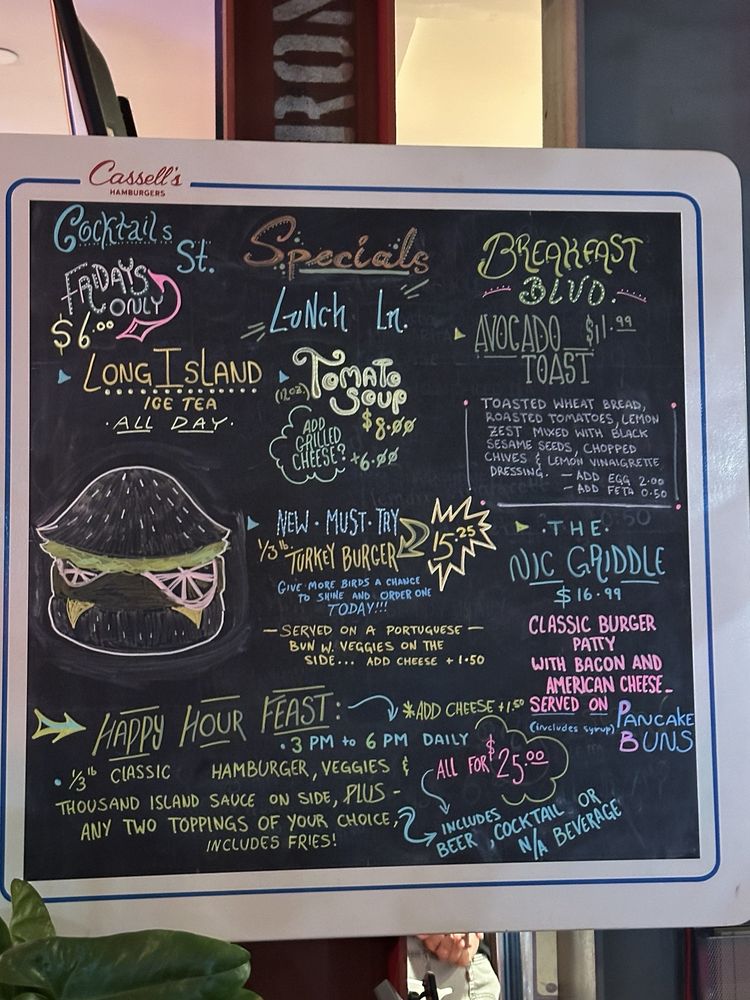 RON
Cassell's
HAMBURGERS
Cocktails
St.
FRIDAYS
ONLY
$6.00
LONG ISLAND
ICE TEA
·ALL DAY·
Specials
LUNCH LN.
TOMATO
SOUP
(12oz.)
$8.00
ADD
GRILLED
CHEESE?
+6.00
NEW·MUST·TRY
1/3 lb. TURKEY BURGER
15.25
GIVE MORE BIRDS A CHANCE
TO SHINE AND ORDER ONE
TODAY!!!
— SERVED ON A PORTUGUESE —
BUN W. VEGGIES ON THE
SIDE... ADD CHEESE +1.50
BREAKFAST
BLVD.
AVOCADO $11.99
TOAST
TOASTED WHEAT BREAD,
ROASTED TOMATOES, LEMON
ZEST MIXED WITH BLACK
SESAME SEEDS, CHOPPED
CHIVES & LEMON VINAIGRETTE
DRESSING. — ADD EGG 2.00
— ADD FETA 0.50
·THE·
NIC GRIDDLE
$16.99
CLASSIC BURGER
PATTY
WITH BACON AND
AMERICAN CHEESE
SERVED ON PANCAKE
(includes syrup) BUNS
HAPPY HOUR FEAST:
*ADD CHEESE +1.50
·3 PM to 6 PM DAILY
· 1/3 lb CLASSIC HAMBURGER, VEGGIES &
THOUSAND ISLAND SAUCE ON SIDE, PLUS -
ANY TWO TOPPINGS OF YOUR CHOICE,
INCLUDES FRIES!
ALL FOR $25.00
INCLUDES
BEER, COCKTAIL OR
N/A BEVERAGE